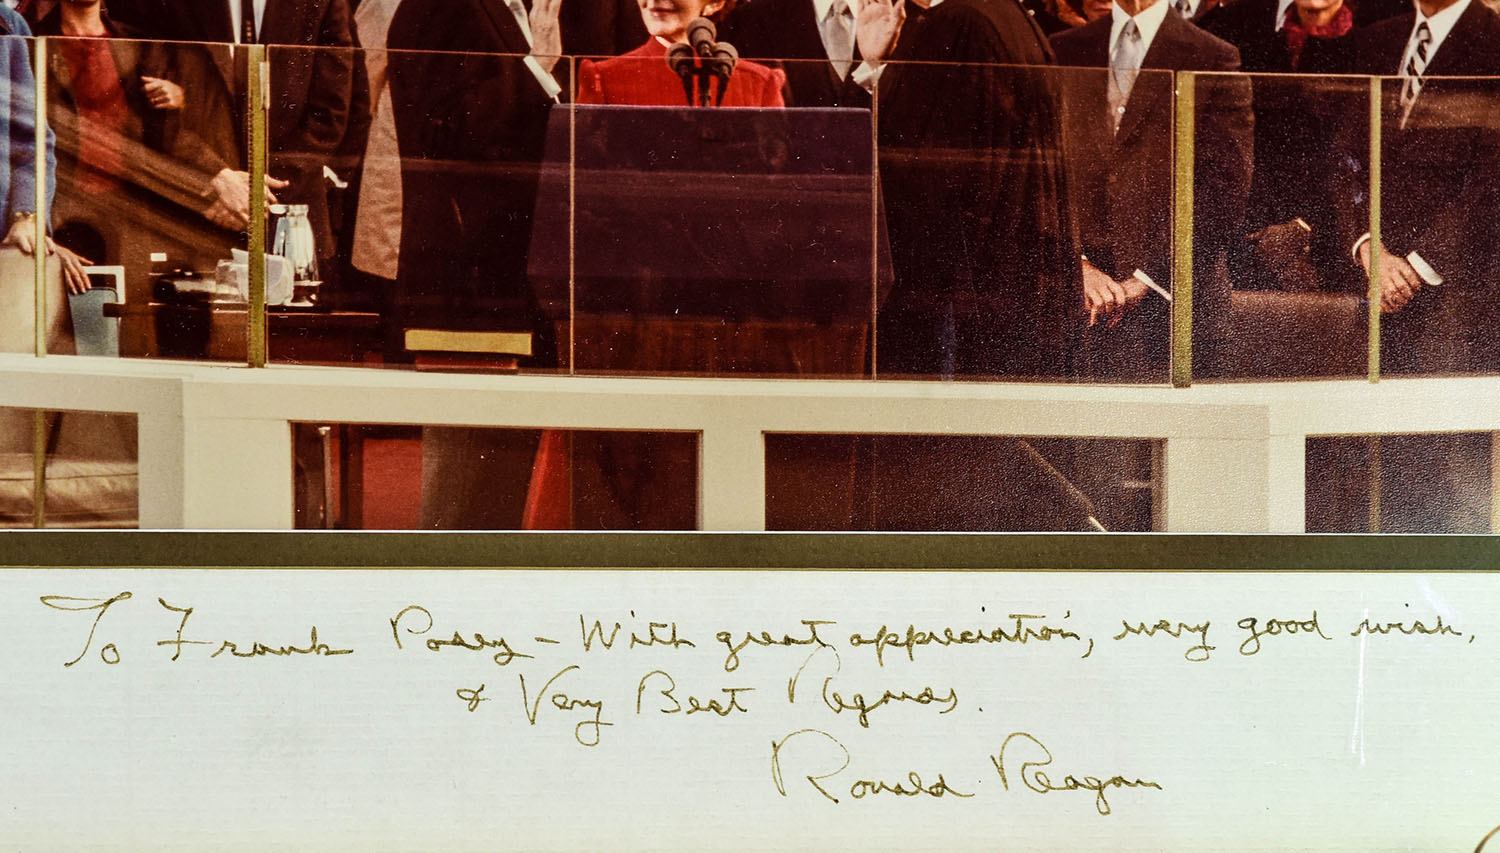 To Frank Posey – With great appreciation, every good wish,
& Very Best Regards.
Ronald Reagan